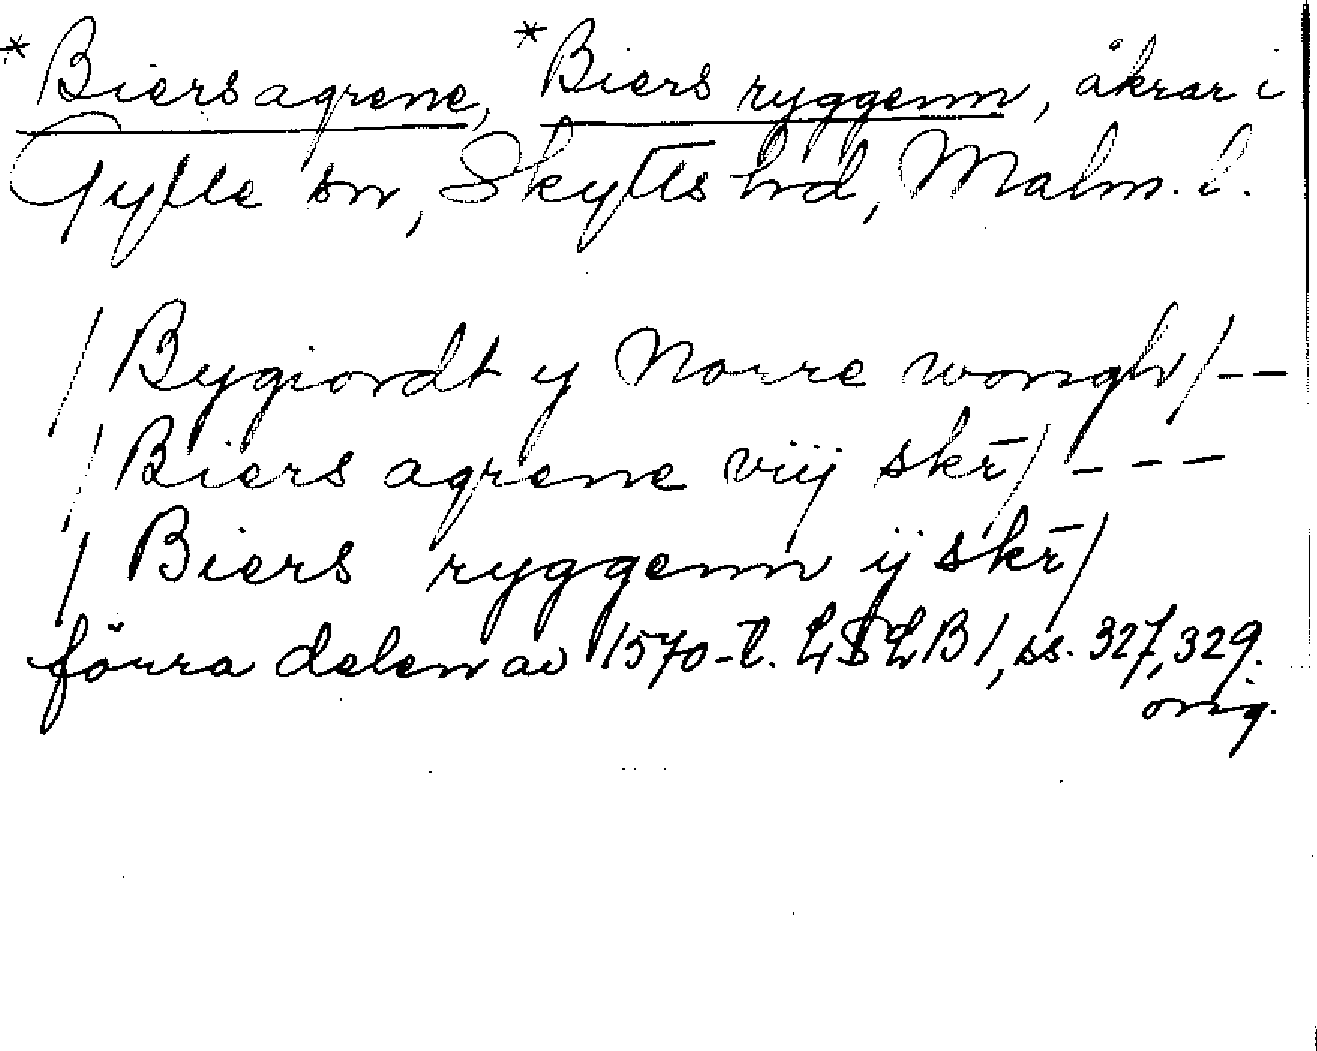 *Biers agrene, *Biers ryggenn, åkrar i
Gylle sn, Skytts hd, Malm. l.
/Bygiordt y Norre wongh/--
/Biers agrene viij skr̄/---
/Biers ryggenn ij skr̄/
förra delen av 1570-t. LSLB 1, ss. 327, 329.
orig.